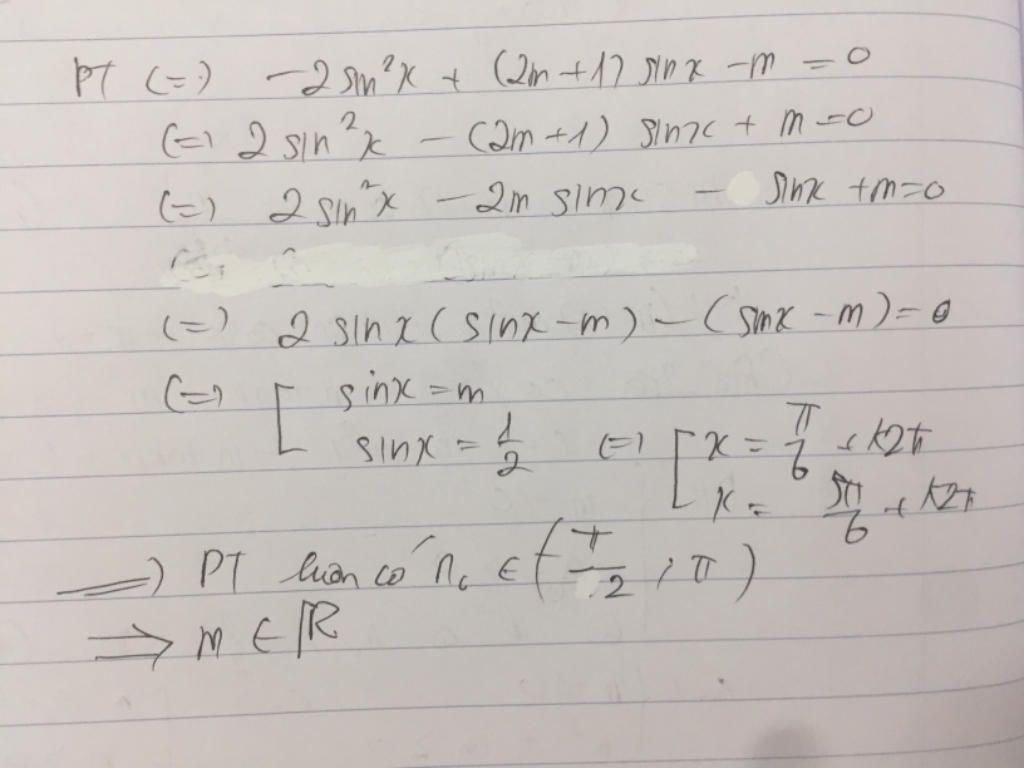 PT (=) −2 sin²x + (2m+1) sinx −m = 0
(=) 2 sin²x − (2m+1) sinx + m = 0
(=) 2 sin²x − 2m sinx − sinx + m = 0
(=) 2 sinx (sinx − m) − (sinx − m) = 0
(=) [ sinx = m
sinx = 1/2 (=) [ x = π/6 + k2π
x = 5π/6 + k2π
=> PT luôn có no ∈ (π/2 ; π)
=> m ∈ ℝ